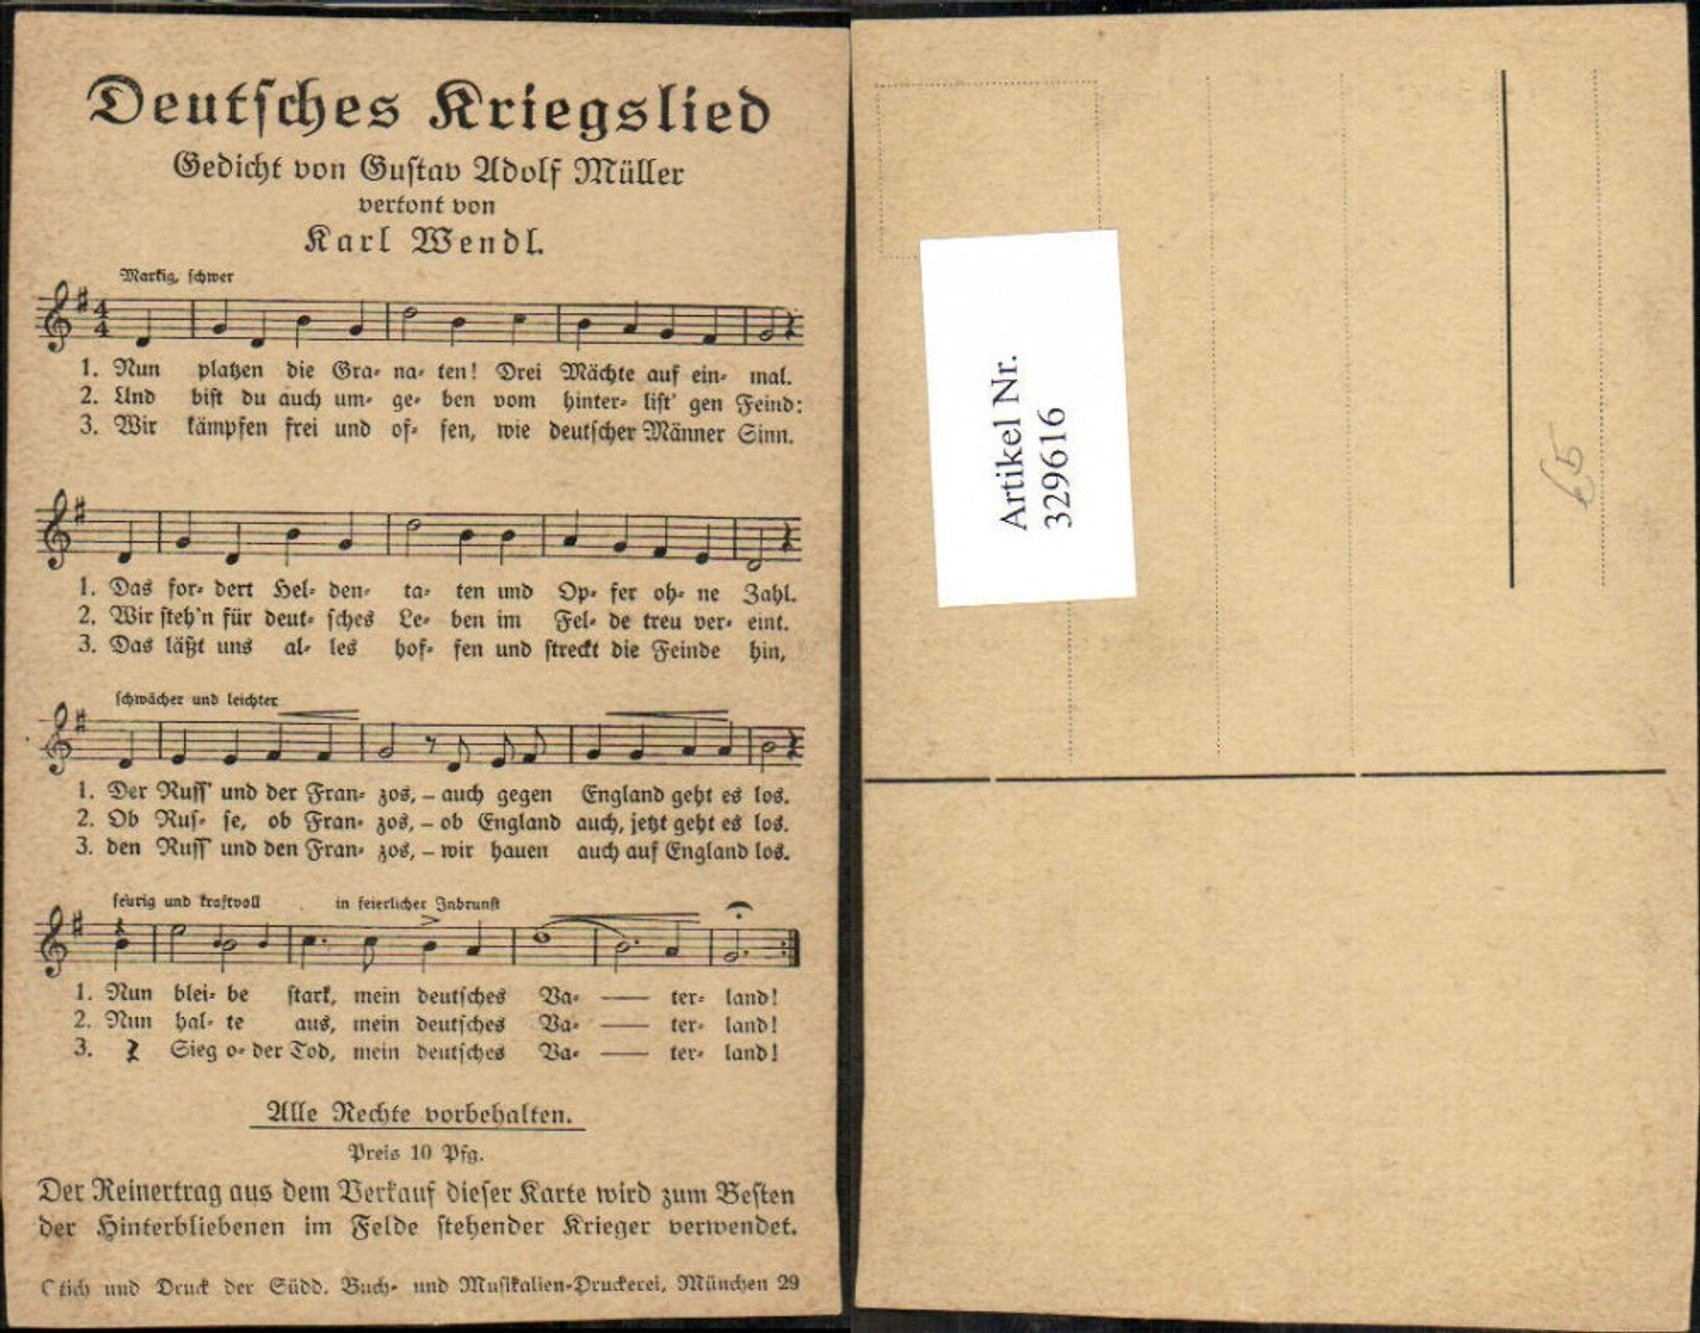 Deutsches Kriegslied
Gedicht von Gustav Adolf Müller
vertont von
Karl Wendl.
Markig, schwer
1. Nun platzen die Gra- na- ten! Drei Mächte auf ein- mal.
2. Und bist du auch um- ge- ben vom hinter- list' gen Feind:
3. Wir kämpfen frei und of- fen, wie deutscher Männer Sinn.
1. Das for- dert Hel- den- ta- ten und Op- fer oh- ne Zahl.
2. Wir steh'n für deut- sches Le- ben im Fel- de treu ver- eint.
3. Das läßt uns al- les hof- fen und streckt die Feinde hin,
schwächer und leichter
1. Der Russ' und der Fran- zos, – auch gegen England geht es los.
2. Ob Rus- se, ob Fran- zos, – ob England auch, jetzt geht es los.
3. den Russ' und den Fran- zos, – wir hauen auch auf England los.
feurig und kraftvoll in feierlicher Inbrunst
1. Nun blei- be stark, mein deutsches Va- — ter- land!
2. Nun hal- te aus, mein deutsches Va- — ter- land!
3. Sieg o- der Tod, mein deutsches Va- — ter- land!
Alle Rechte vorbehalten.
Preis 10 Pfg.
Der Reinertrag aus dem Verkauf dieser Karte wird zum Besten
der Hinterbliebenen im Felde stehender Krieger verwendet.
Stich und Druck der Südd. Buch- und Musikalien-Druckerei, München 29
Artikel Nr.
329616
65